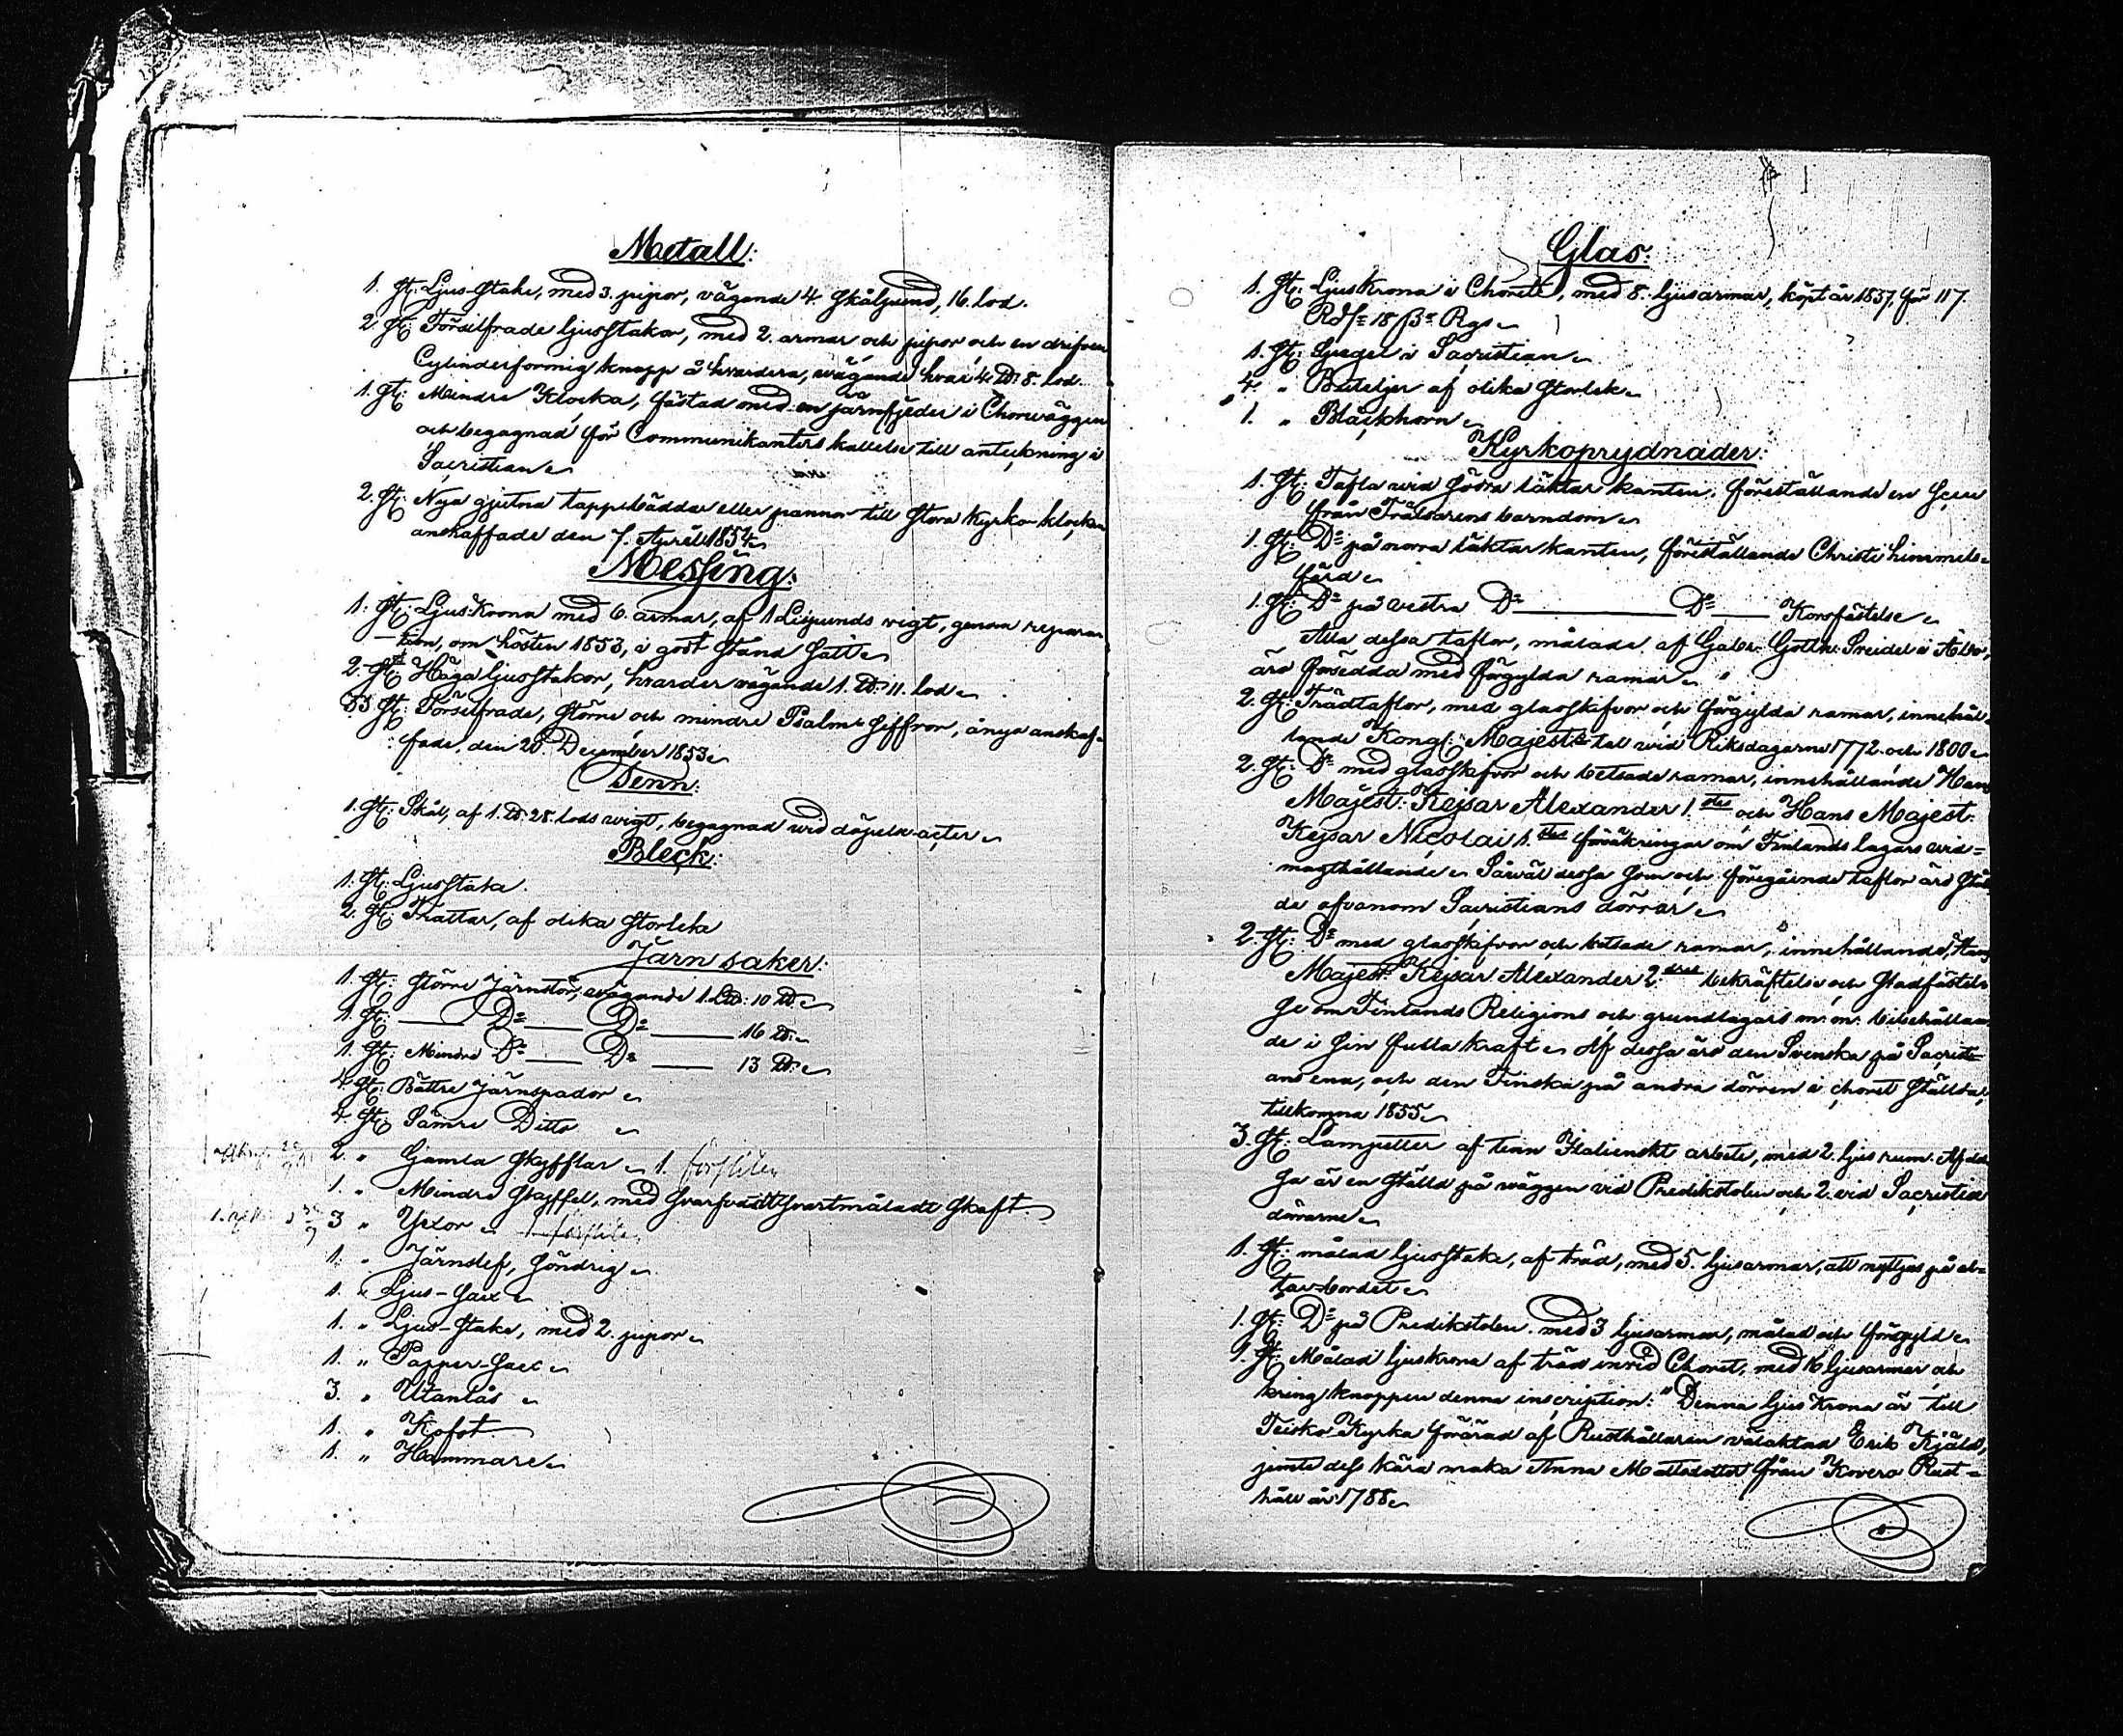 Metall:
1. St: Ljus-stake, med 3. pipor, vägande 4. skålpund, 16. lod.
2. St: Försilfrade ljusstakar, med 2. armar och pipor och en drifven
Cylinderformig knapp å hvardera, vägande hvar 4. ℔: 8. lod.
1. St: Mindre Klocka, fästad med en järnfjeder i Chorväggen
och begagnad för Communikanters kallelse till anteckning i
Sacristian
2. St: Nya gjutna tappebäddar eller pannor till stora Kyrko-klockan
anskaffade den 7. April 1854
Messing:
1. St: Ljus-Krona med 6. armar, af 1 Lispunds vigt, genom repara-
-tion, om hösten 1853, i godt stånd satt
2. St: Höga ljusstakar, hvarder vägande 1. ℔: 11. lod
83 St: Försilfrade, större och mindre Psalm-siffror, ånyo anskaf-
fade, den 20. December 1853
Tenn:
1. St: Skål, af 1. ℔: 28. lods vigt, begagnad vid döpelse-acter
Bleck:
1. St: Ljusstake.
2. St: Trattar, af olika storlek
Järnsaker:
1. St: större Järnstör, vägande 1. L℔: 10 ℔:
1. St: — Do — Do — 16 ℔:
1. St: Mindre Do — Do — 13 ℔:
4 St: Bättre Järnspador
4 St: Sämre Ditto
2. „ Gamla skyfflar 1. försliten
1. „ Mindre skyffel, med svartmåladt skaft
3 „ Yxor 1 försliten
1. „ Järnslef, söndrig
1. „ Ljus-sax
1. „ Ljus-stake, med 2. pipor
1. „ Papper-sax
3. „ Utanlås
1. „ Kofot
1. „ Hammare
Glas:
1. St: Ljuskrona i Choret, med 8. ljusarmar, köpt år 1837 för 117.
Rds 18 βr Rgs
1. St: Spegel i Sacristian
4. „ Buteljer af olika storlek
1. „ Bläckhorn
Kyrkoprydnader:
1. St: Tafla vid södra läktar kanten, föreställande en scen
från Frälsarens barndom
1. St: Do på norra läktar kanten, föreställande Christi himmels-
färd
1. St: Do på vestra Do — Do — Korsfästelse
Alla dessa taflor, målade af Gotth. i Åbo,
äro försedda med förgylda ramar
2. St: Trädtaflor, med glasskifvor och förgylda ramar, innehål-
lande Kongl: Majests tal vid Riksdagarne 1772. och 1800
2. St: Do med glasskifvor och betsade ramar, innehållande Hans
Majest: Kejsar Alexander 1.stes och Hans Majest:
Kejsar Nicolai 1.stes försäkringar om Finlands lagars vid=
magthållande Såväl dessa som och föregående taflor äro ställ
de ofvanom Sacristians dörrar
2. St: Do med glasskifvor och betsade ramar, innehållande Hans
Majest: Kejsar Alexander 2.dres bekräftelse och stadfästel
se om Finlands Religions och grundlagars m: m: bibehållan
de i sin fulla kraft Af dessa äro den Svenska på Sacristi=
ans ena, och den Finska på andra dörren i choret ställda,
tillkomna 1855.
3. St: Lampetter af tenn Italienskt arbete, med 2. ljus rum. Af des
sa är en ställd på väggen vid Predikstolen och 2. vid Sacristie
dörrarne
1. St: målad ljusstake, af träd, med 5. ljusarmar, att nyttjas på al=
tar-bordet
1. St: Do på Predikstolen med 3 ljusarmar, målad och förgyld
1. St: Målad ljuskrona af träd invid Choret, med 16 ljusarmar och
kring knoppen denna inscription: "Denna ljus Krona är till
Teisko Kyrka förärad af Rusthållaren välaktad Erik Kjäld,
jemte dess kära maka Anna Mattsdotter från Kovero Rust-
håll år 1788